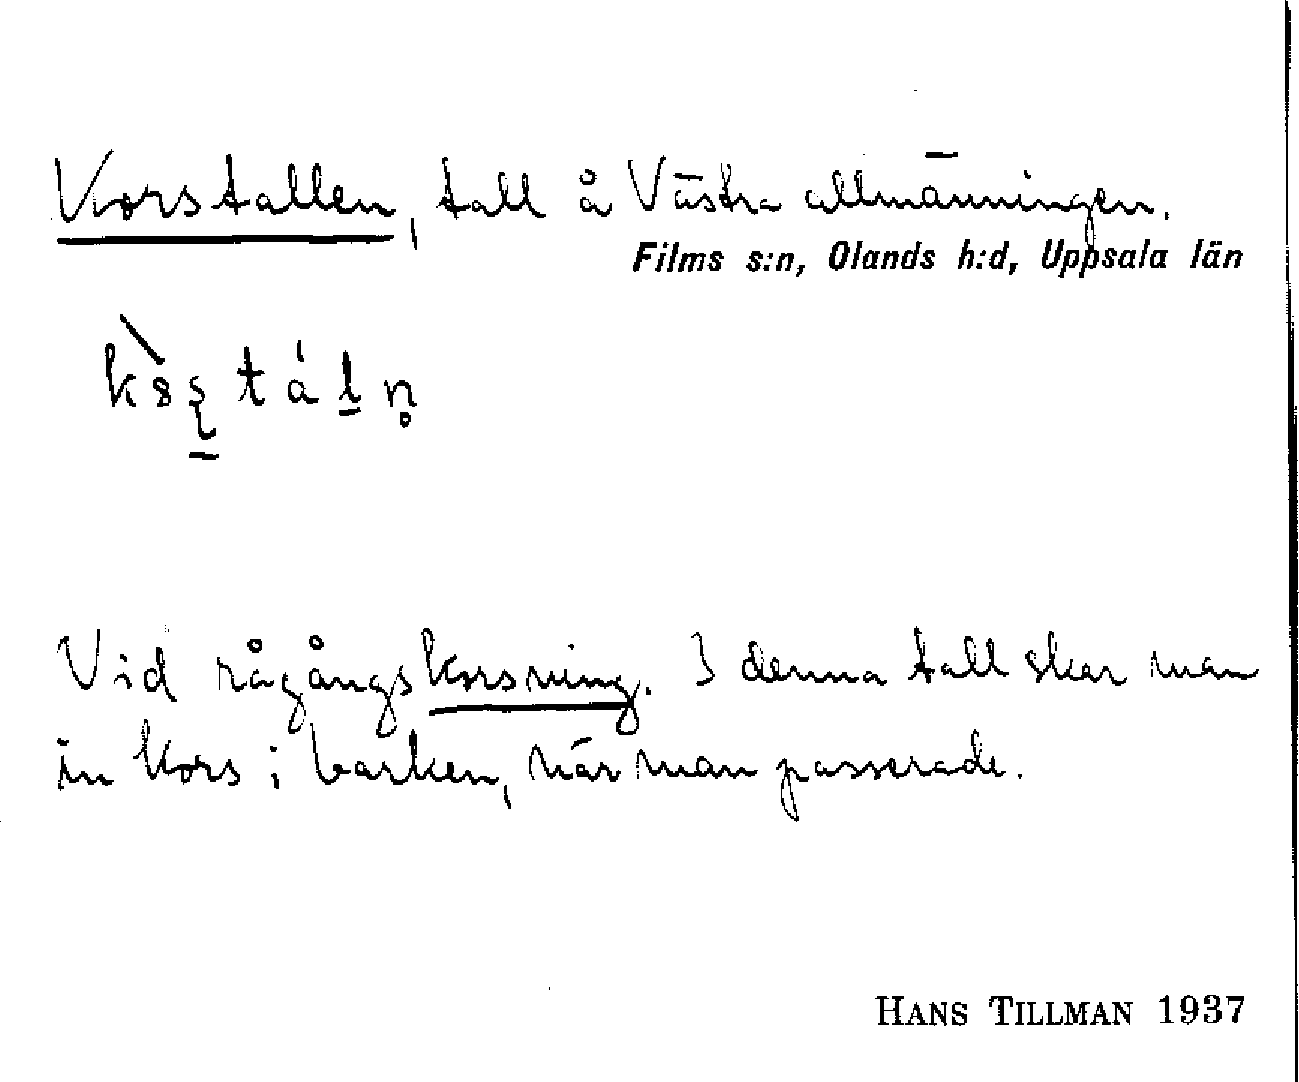 Korstallen, tall å Västra allmänningen.
Films s:n, Olands h:d, Uppsala län
Vid rågångskorsning. I denna tall skar man
in kors i barken, när man passerade.
HANS TILLMAN 1937